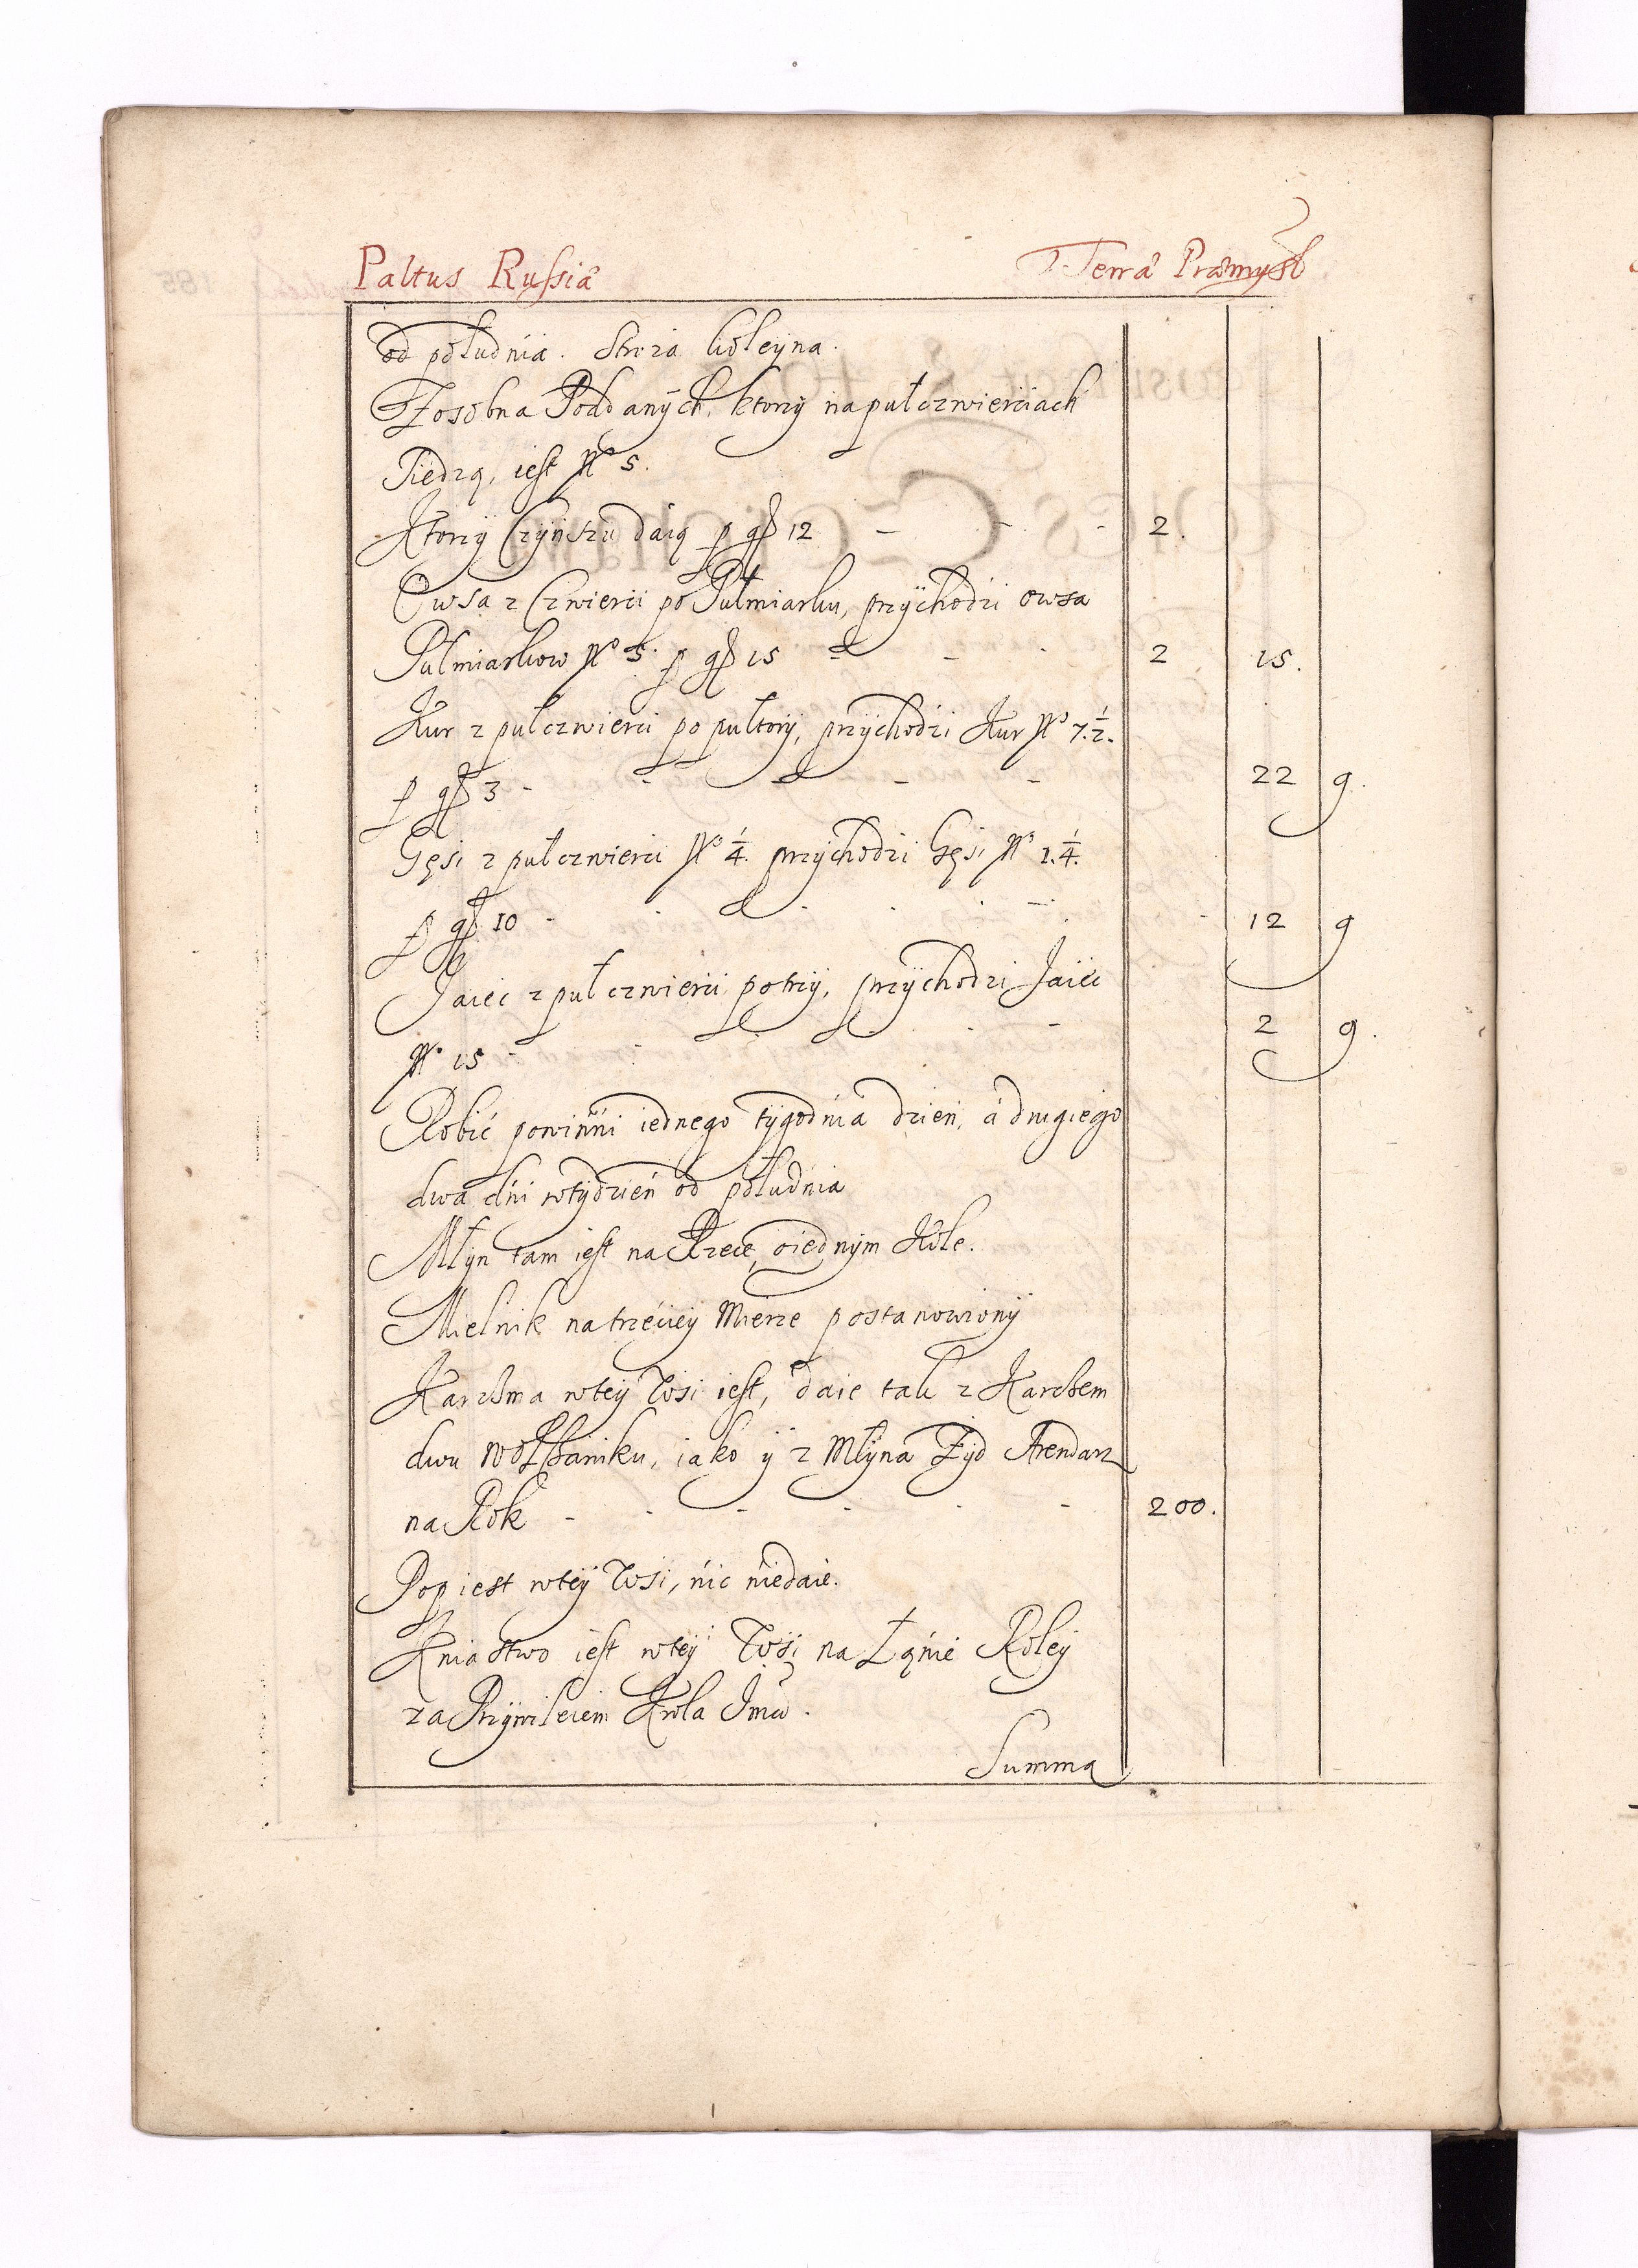 Paltus Russiæ Terræ Præmysl
od południa. Stroża koleyna.
Zosobna Poddanych, ktorzy na pułczwierciach
Siedzą, iest No 5.
Ktorzy Czynszu daią p gß 12 - - - 2.
Owsa z Czwierci po Pułmiarku, przychodzi owsa
Pułmiarkow No 5. p gß 15 - - 2 15.
Kur z pułczwierci po pułtory, przychodzi Kur No 7. 1/2.
p gß 3 - - - - - 22 9.
Gęsi z pułczwierci No 1/4. przychodzi Gęsi No 1. 1/4.
p gß 10 - - - - 12 9
Jaiec z pułczwierci potrzy, przychodzi Jaiec
No 15 - - - - 2 9.
Robić powinni iednego tygodnia dzień, á drugiego
dwa dni wtydzień od południa
Młyn tam iest na Rzece, oiednym Kole.
Mielnik natrzeciey Mierze postanowiony
Karczma wtey Wsi iest, daie tak z Karczem
dwu wolszaniku, iako y z Młyna Żyd Arendarz
na Rok - - - - - - 200.
Pop iest wtey Wsi, nic niedaie.
Kniastwo iest wtey Wsi na Łanie Roley
za Przywileiem Krola Jmci.
Summa